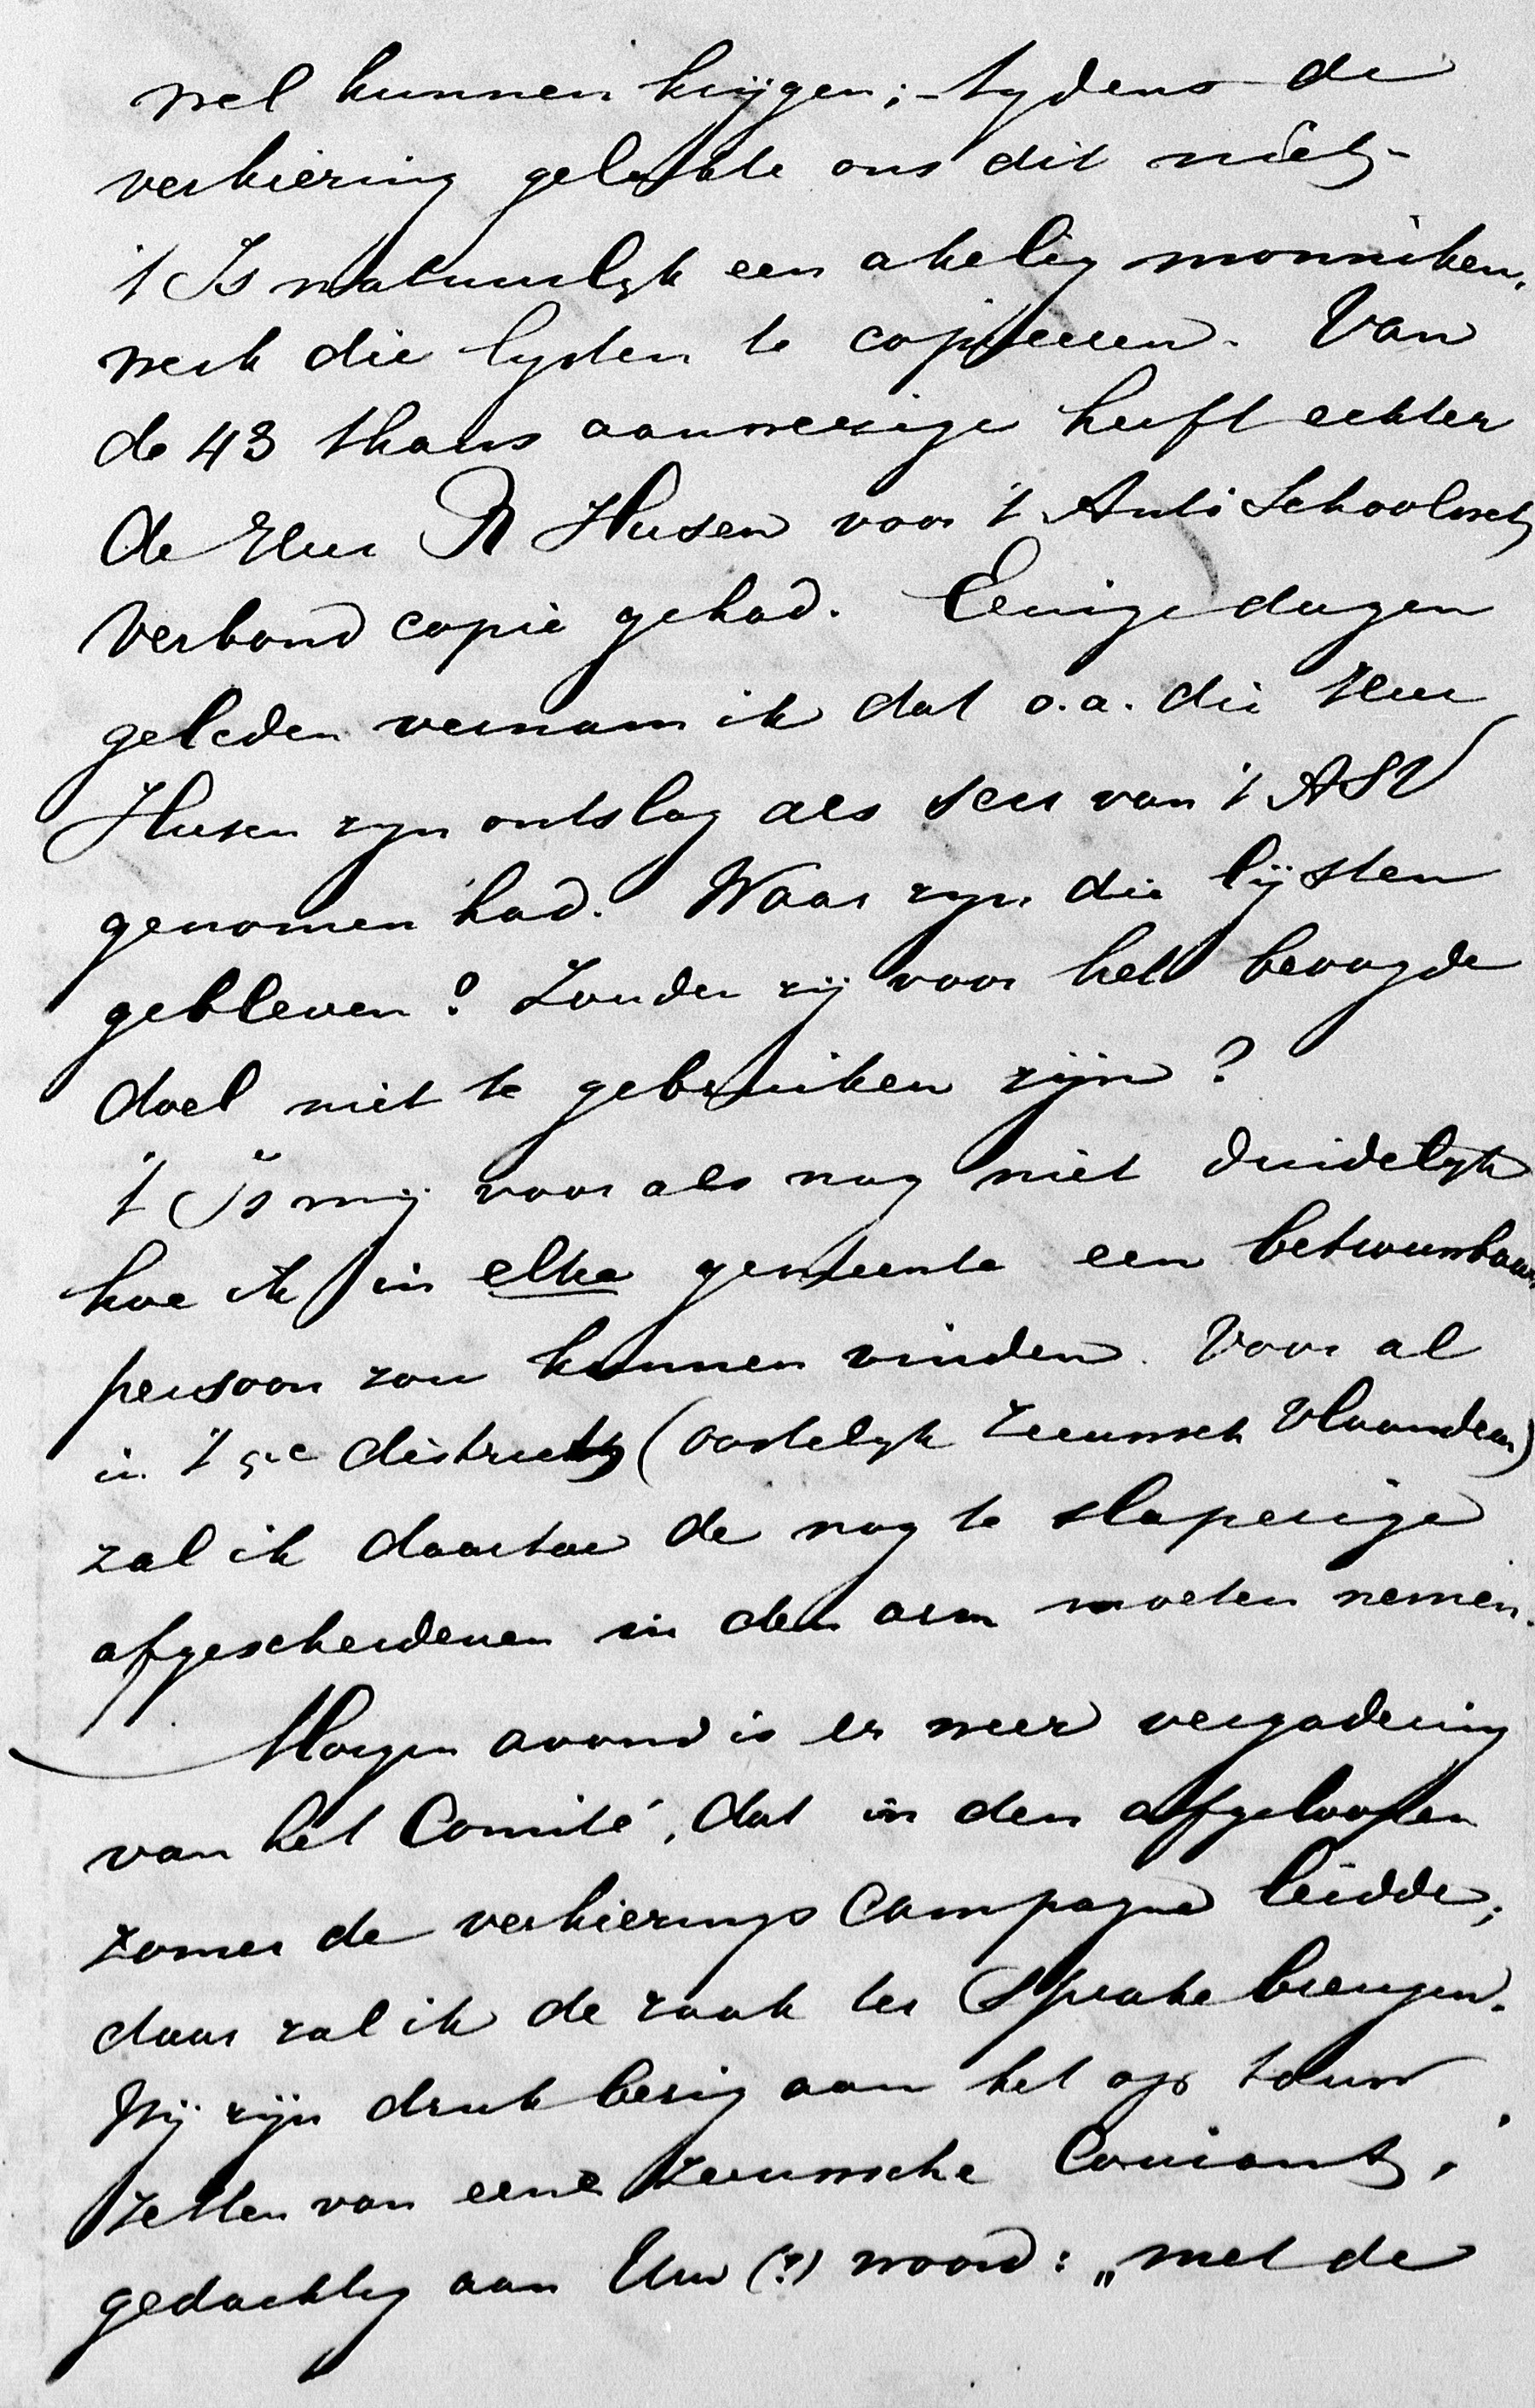 wel kunnen krijgen; – tydens de
verkiezing gelukte ons dit niet –
't Is natuurlyk een akelig monniken,
werk die lysten te copieeren. Van
de 43 thans aanwezige heeft echter
de Heer R Husen voor 't Anti Schoolwet
Verbond copie gehad. Eenige dagen
geleden vernam ik dat o.a. die Heer
Husen zyn ontslag als Secr van 't ASV
genomen had. Waar zyn die lijsten
gebleven? Zouden zij voor het beoogde
doel niet te gebruiken zijn?
't Is mij voor als nog niet duidelyk
hoe ik in elke gemeente een betrouwbaar
persoon zou kunnen vinden. Voor al
in 't 5e district (oostelyk Zeeuwsch Vlaanderen)
zal ik daartoe de nog te slaperige
afgescheidenen in den arm moeten nemen.
Morgen avond is er weer vergadering
van het Comité, dat in den afgeloopen
zomer de verkiezings Campagne leidde;
daar zal ik de zaak ter sprake brengen.
Wij zijn druk bezig aan het op touw
zetten van eene Zeeuwsche Courant,
gedachtig aan Uw (?) woord: „met de